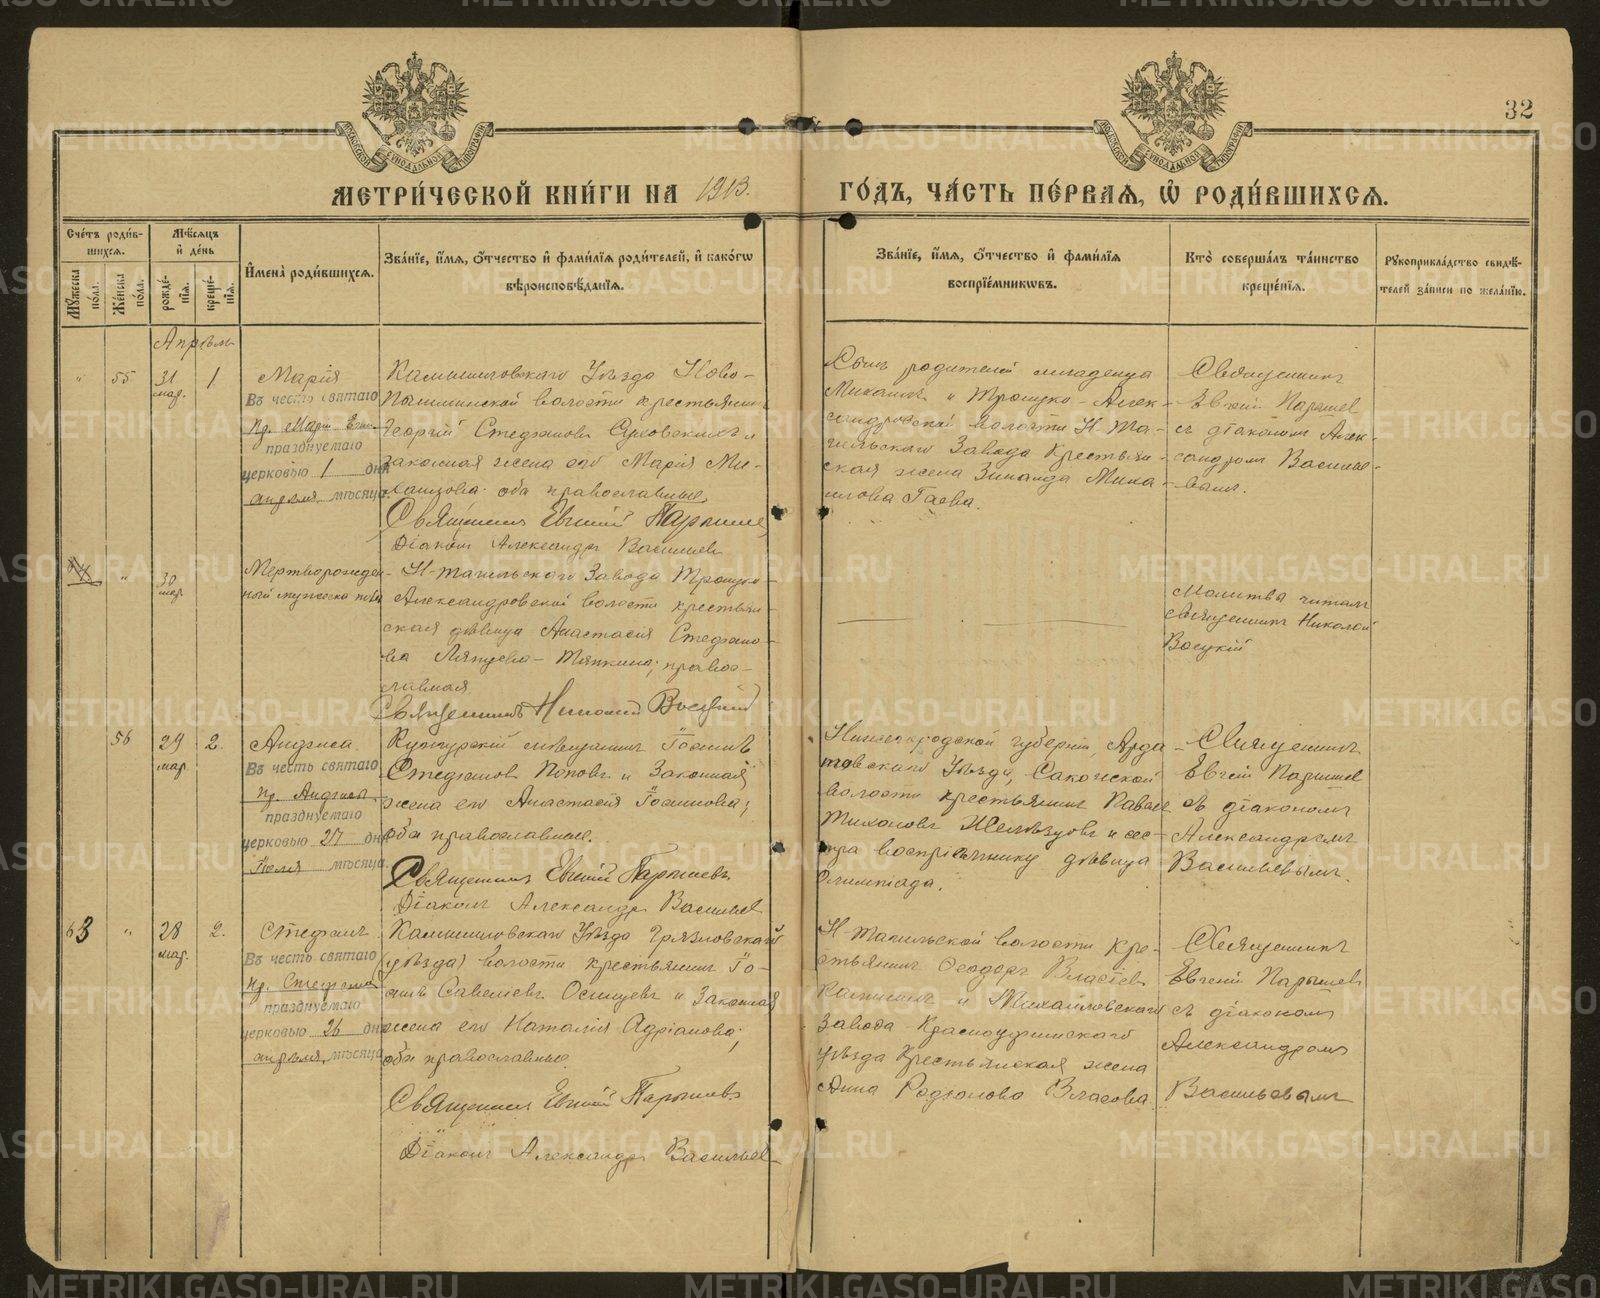 32
МЕТРИ́ЧЕСКОЙ КНИ́ГИ НА 1913.
ГО́ДЪ, ЧА́СТЬ ПЕ́РВАѦ, Ѡ҆ РОДИ́ВШИХСѦ.
Сче́тъ роди́в-
шихсѧ.
Му́жеска пола.
Же́нска по́ла.
Мѣ́сѧцъ и҆ де́нь
рожде́-
нїѧ.
креще́-
нїѧ.
И҆мена̀ роди́вшихсѧ.
Зва́нїе, и҆́мѧ, ѻ҆́тчество и҆ фами́лїѧ роди́телей, и҆ како́гѡ
вѣроисповѣ́данїѧ.
Зва́нїе, и҆́мѧ, ѻ҆́тчество и҆ фами́лїѧ
воспрїе́мникѡвъ.
Кто̀ соверша́лъ та́инство
креще́нїѧ.
Рꙋкоприкла́дство свидѣ́-
телей за́писи по жела́нїю.
Апрѣль
" 55 31 мар. 1
Марія
Въ честь святаго
пр. Маріи Егип.
празднуемаго
церковью 1 дня
апрѣля мѣсяца
Камышловскаго Уѣзда Ново-
Пышминской волости крестьянинъ
Георгій Стефановъ и
законная жена его Марія Ми-
хаилова оба православные.
Священникъ Евгеній Парышев
Діаконъ Александръ Васильев
Сынъ родителей младенца
Михаилъ и Троицко-Алек-
сандровской волости Н-Та-
гильскаго Завода Крестьян-
ская жена Зинаида Миха-
илова Гаева.
Священникъ
Евгеній Парышев
съ діакономъ Алек-
сандромъ Василье-
вымъ.
" 30 мар.
Мертворожден-
ный мужеска пола
Н-Тагильскаго Завода Троицко-
Александровской волости крестьян-
ская дѣвица Анастасія Стефано-
ва православная
Священникъ Николай
Молитвы читалъ
священникъ Николай
56 29 мар. 2.
Анфиса
Въ честь святаго
пр. Анфисы
празднуемаго
церковью 27 дня
Іюля мѣсяца
Кунгурскій мѣщанинъ Іоаннъ
Стефановъ Поповъ и Законная
жена его Анастасія Іоаннова;
оба православные.
Священникъ Евгеній Парышевъ
Діаконъ Александръ Васильев
Нижегородской губерніи, Арда-
товскаго Уѣзда, волости крестьянинъ Павелъ
Тихоновъ Желѣзцовъ и сес-
тра воспріемнику дѣвица
Олимпіада.
Священникъ
Евгеній Парышев
съ діакономъ
Александромъ
Васильевымъ.
63 " 28 мар. 2.
Стефанъ
Въ честь святаго
пр. Стефана
празднуемаго
церковью 26 дня
апрѣля мѣсяца
Камышловскаго Уѣзда Грязновской
(уѣзда) волости крестьянинъ Іо-
аннъ Савеліевъ Осинцевъ и Законная
жена его Наталія Адріанова;
оба православные.
Священникъ Евгеній Парышевъ
Діаконъ Александръ Васильев
Н-Тагильской волости Кре-
стьянинъ Ѳеодоръ Власіев
и Михайловскаго
Завода Красноуфимскаго
уѣзда Крестьянская жена
Анна Родіонова Власова
Священникъ
Евгеній Парышевъ
съ діакономъ
Александромъ
Васильевымъ